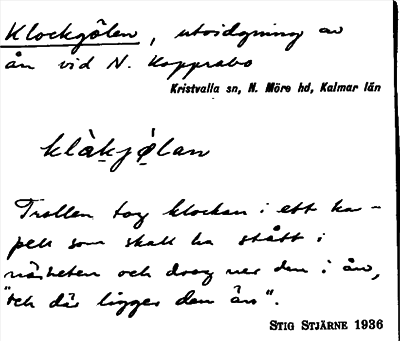 Klockgölen, utvidgning av
ån vid N. Kopprabo
Kristvalla sn, N. Möre hd, Kalmar län
klåkjölan
Trollen tog klockan i ett ka-
pell som skall ha stått i
närheten och drog ner den i ån,
"och där ligger den än".
STIG STJÄRNE 1936